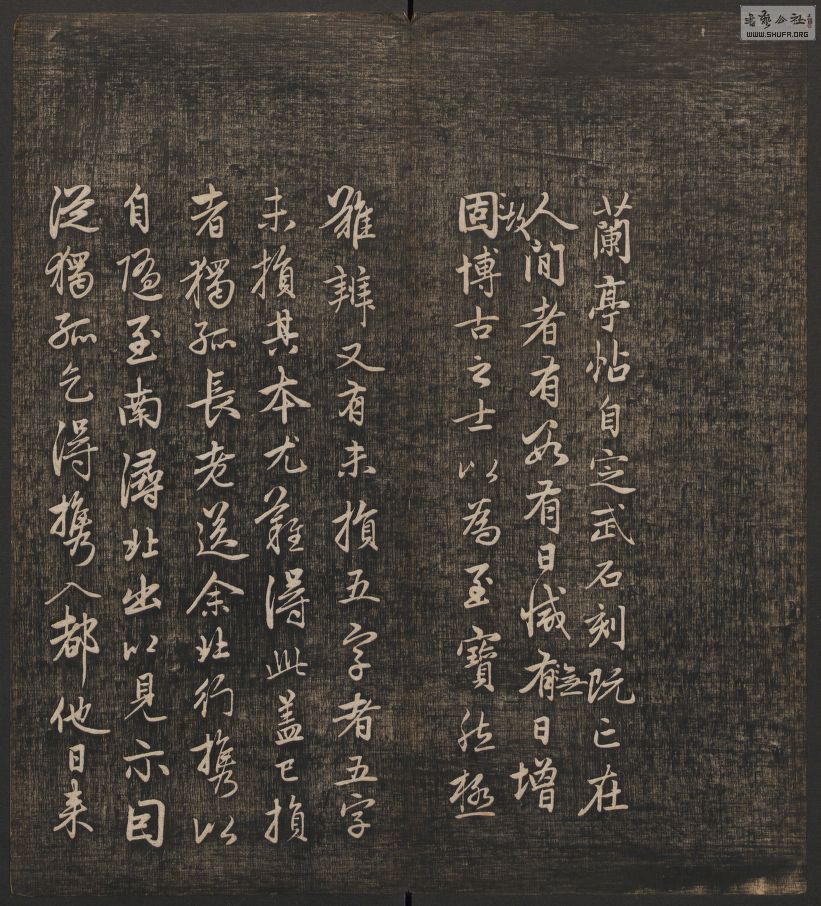 蘭亭帖自定武石刻既亡在
人間者有數有日減有無日增
固故博古之士以為至寶然極
難辨又有未損五字者五字
未損其本尤難得此蓋已損
者獨孤長老送余北行攜以
自隨至南潯北出以見示因
從獨孤乞得攜入都他日來
書藝公社
WWW.SHUFA.ORG